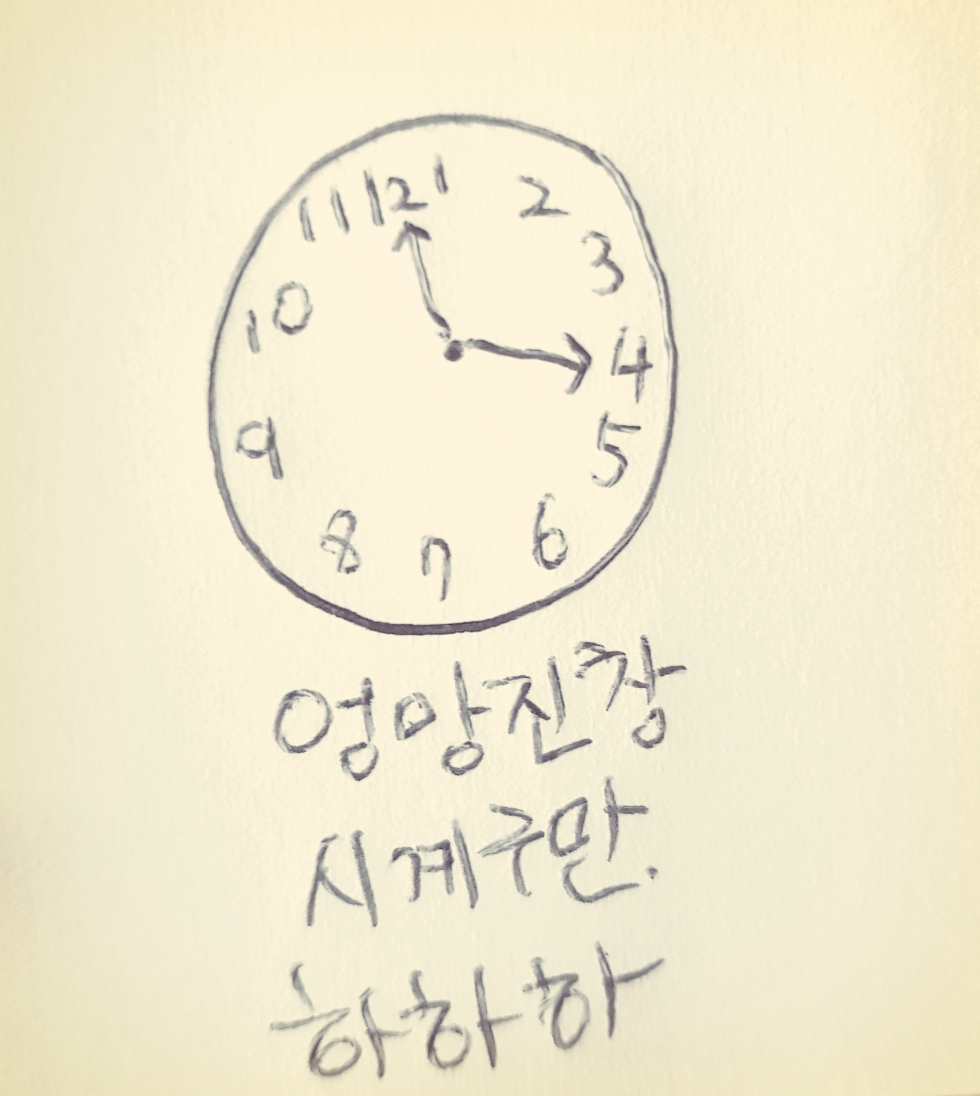 11 12 1 2
3
10
4
9 5
8 7 6
엉망진창
시계구만.
하하하